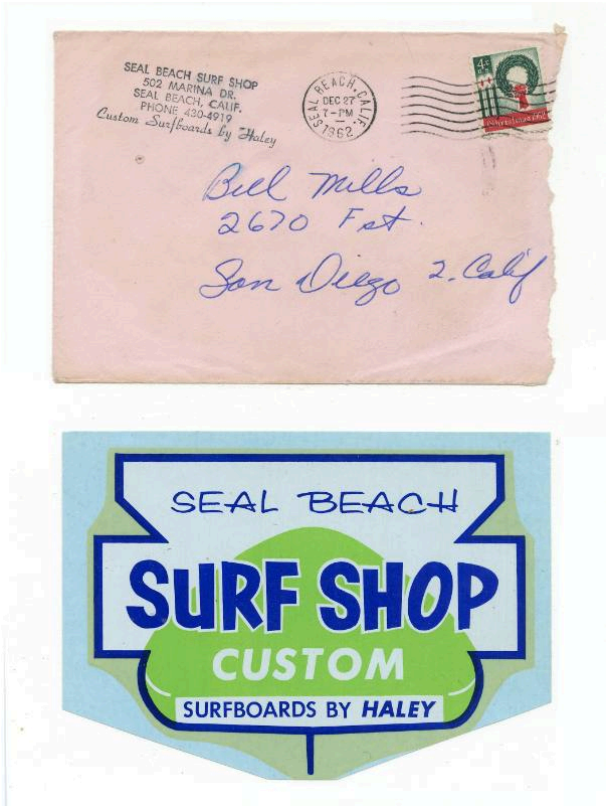 SEAL BEACH SURF SHOP
502 MARINA DR.
SEAL BEACH, CALIF.
PHONE 430-4919
Custom Surfboards by Haley
SEAL BEACH, CALIF.
DEC 27
7-PM
1962
4¢
Bill Mills
2670 F st.
San Diego 2. Calif
SEAL BEACH
SURF SHOP
CUSTOM
SURFBOARDS BY HALEY